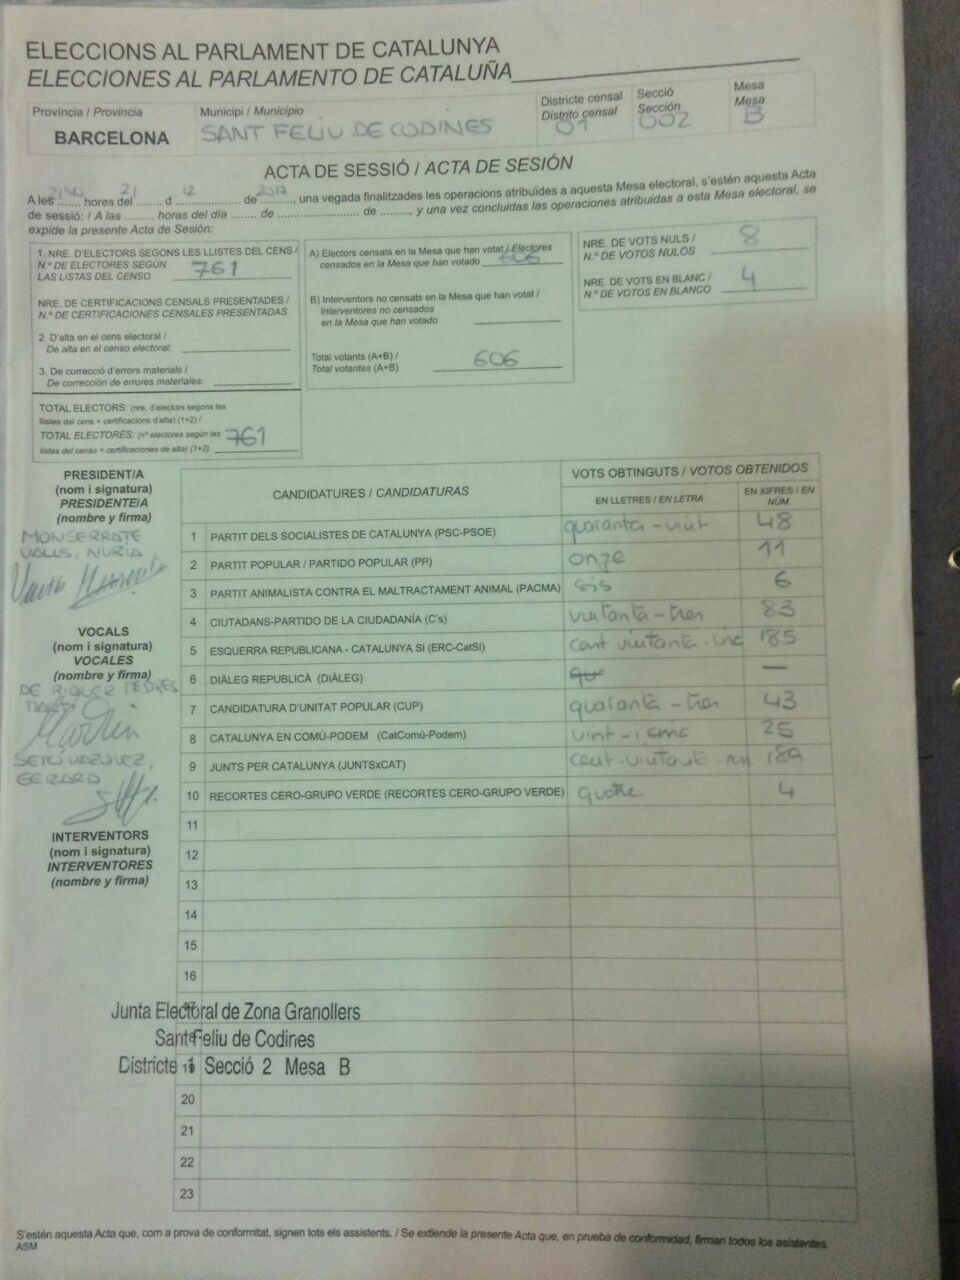 ELECCIONS AL PARLAMENT DE CATALUNYA
ELECCIONES AL PARLAMENTO DE CATALUÑA
Província / Provincia
BARCELONA
Municipi / Municipio
SANT FELIU DE CODINES
Districte censal
Distrito censal
01
Secció
Sección
002
Mesa
Mesa
B
ACTA DE SESSIÓ / ACTA DE SESIÓN
A les 21:40 hores del 21 d 12 de 2017, una vegada finalitzades les operacions atribuïdes a aquesta Mesa electoral, s'estén aquesta Acta
de sessió: / A las ........ horas del día ....... de ........................ de ........, y una vez concluidas las operaciones atribuidas a esta Mesa electoral, se
expide la presente Acta de Sesión:
1. NRE. D'ELECTORS SEGONS LES LLISTES DEL CENS /
N.º DE ELECTORES SEGÚN
LAS LISTAS DEL CENSO 761
NRE. DE CERTIFICACIONS CENSALS PRESENTADES /
N.º DE CERTIFICACIONES CENSALES PRESENTADAS
2. D'alta en el cens electoral /
De alta en el censo electoral:
3. De correcció d'errors materials /
De corrección de errores materiales:
TOTAL ELECTORS: (nre. d'electors segons les
llistes del cens + certificacions d'alta) (1+2) /
TOTAL ELECTORES: (nº electores según las 761
listas del censo + certificaciones de alta) (1+2)
A) Electors censats en la Mesa que han votat / Electores
censados en la Mesa que han votado 606
B) Interventors no censats en la Mesa que han votat /
Interventores no censados
en la Mesa que han votado
Total votants (A+B) /
Total votantes (A+B) 606
NRE. DE VOTS NULS /
N.º DE VOTOS NULOS 8
NRE. DE VOTS EN BLANC /
N.º DE VOTOS EN BLANCO 4
PRESIDENT/A
(nom i signatura)
PRESIDENTE/A
(nombre y firma)
MONSERRATE
VALLS, NURIA
VOCALS
(nom i signatura)
VOCALES
(nombre y firma)
DE RIQUER MESTRES
MARTÍ
SETÓ VAZQUEZ,
GERARD
INTERVENTORS
(nom i signatura)
INTERVENTORES
(nombre y firma)
CANDIDATURES / CANDIDATURAS
VOTS OBTINGUTS / VOTOS OBTENIDOS
EN LLETRES / EN LETRA
EN XIFRES / EN NÚM.
1 PARTIT DELS SOCIALISTES DE CATALUNYA (PSC-PSOE) quaranta-vuit 48
2 PARTIT POPULAR / PARTIDO POPULAR (PP) onze 11
3 PARTIT ANIMALISTA CONTRA EL MALTRACTAMENT ANIMAL (PACMA) sis 6
4 CIUTADANS-PARTIDO DE LA CIUDADANÍA (C's) vuitanta-tres 83
5 ESQUERRA REPUBLICANA - CATALUNYA SI (ERC-CatSí) cent vuitanta-cinc 185
6 DIÀLEG REPUBLICÀ (DIÀLEG) —
7 CANDIDATURA D'UNITAT POPULAR (CUP) quaranta-tres 43
8 CATALUNYA EN COMÚ-PODEM (CatComú-Podem) vint-i-cinc 25
9 JUNTS PER CATALUNYA (JUNTSxCAT) cent-vuitanta-nou 189
10 RECORTES CERO-GRUPO VERDE (RECORTES CERO-GRUPO VERDE) quatre 4
11
12
13
14
15
16
17
Junta Electoral de Zona Granollers
Sant Feliu de Codines
Districte 1 Secció 2 Mesa B
20
21
22
23
S'estén aquesta Acta que, com a prova de conformitat, signen tots els assistents. / Se extiende la presente Acta que, en prueba de conformidad, firman todos los asistentes.
ASM